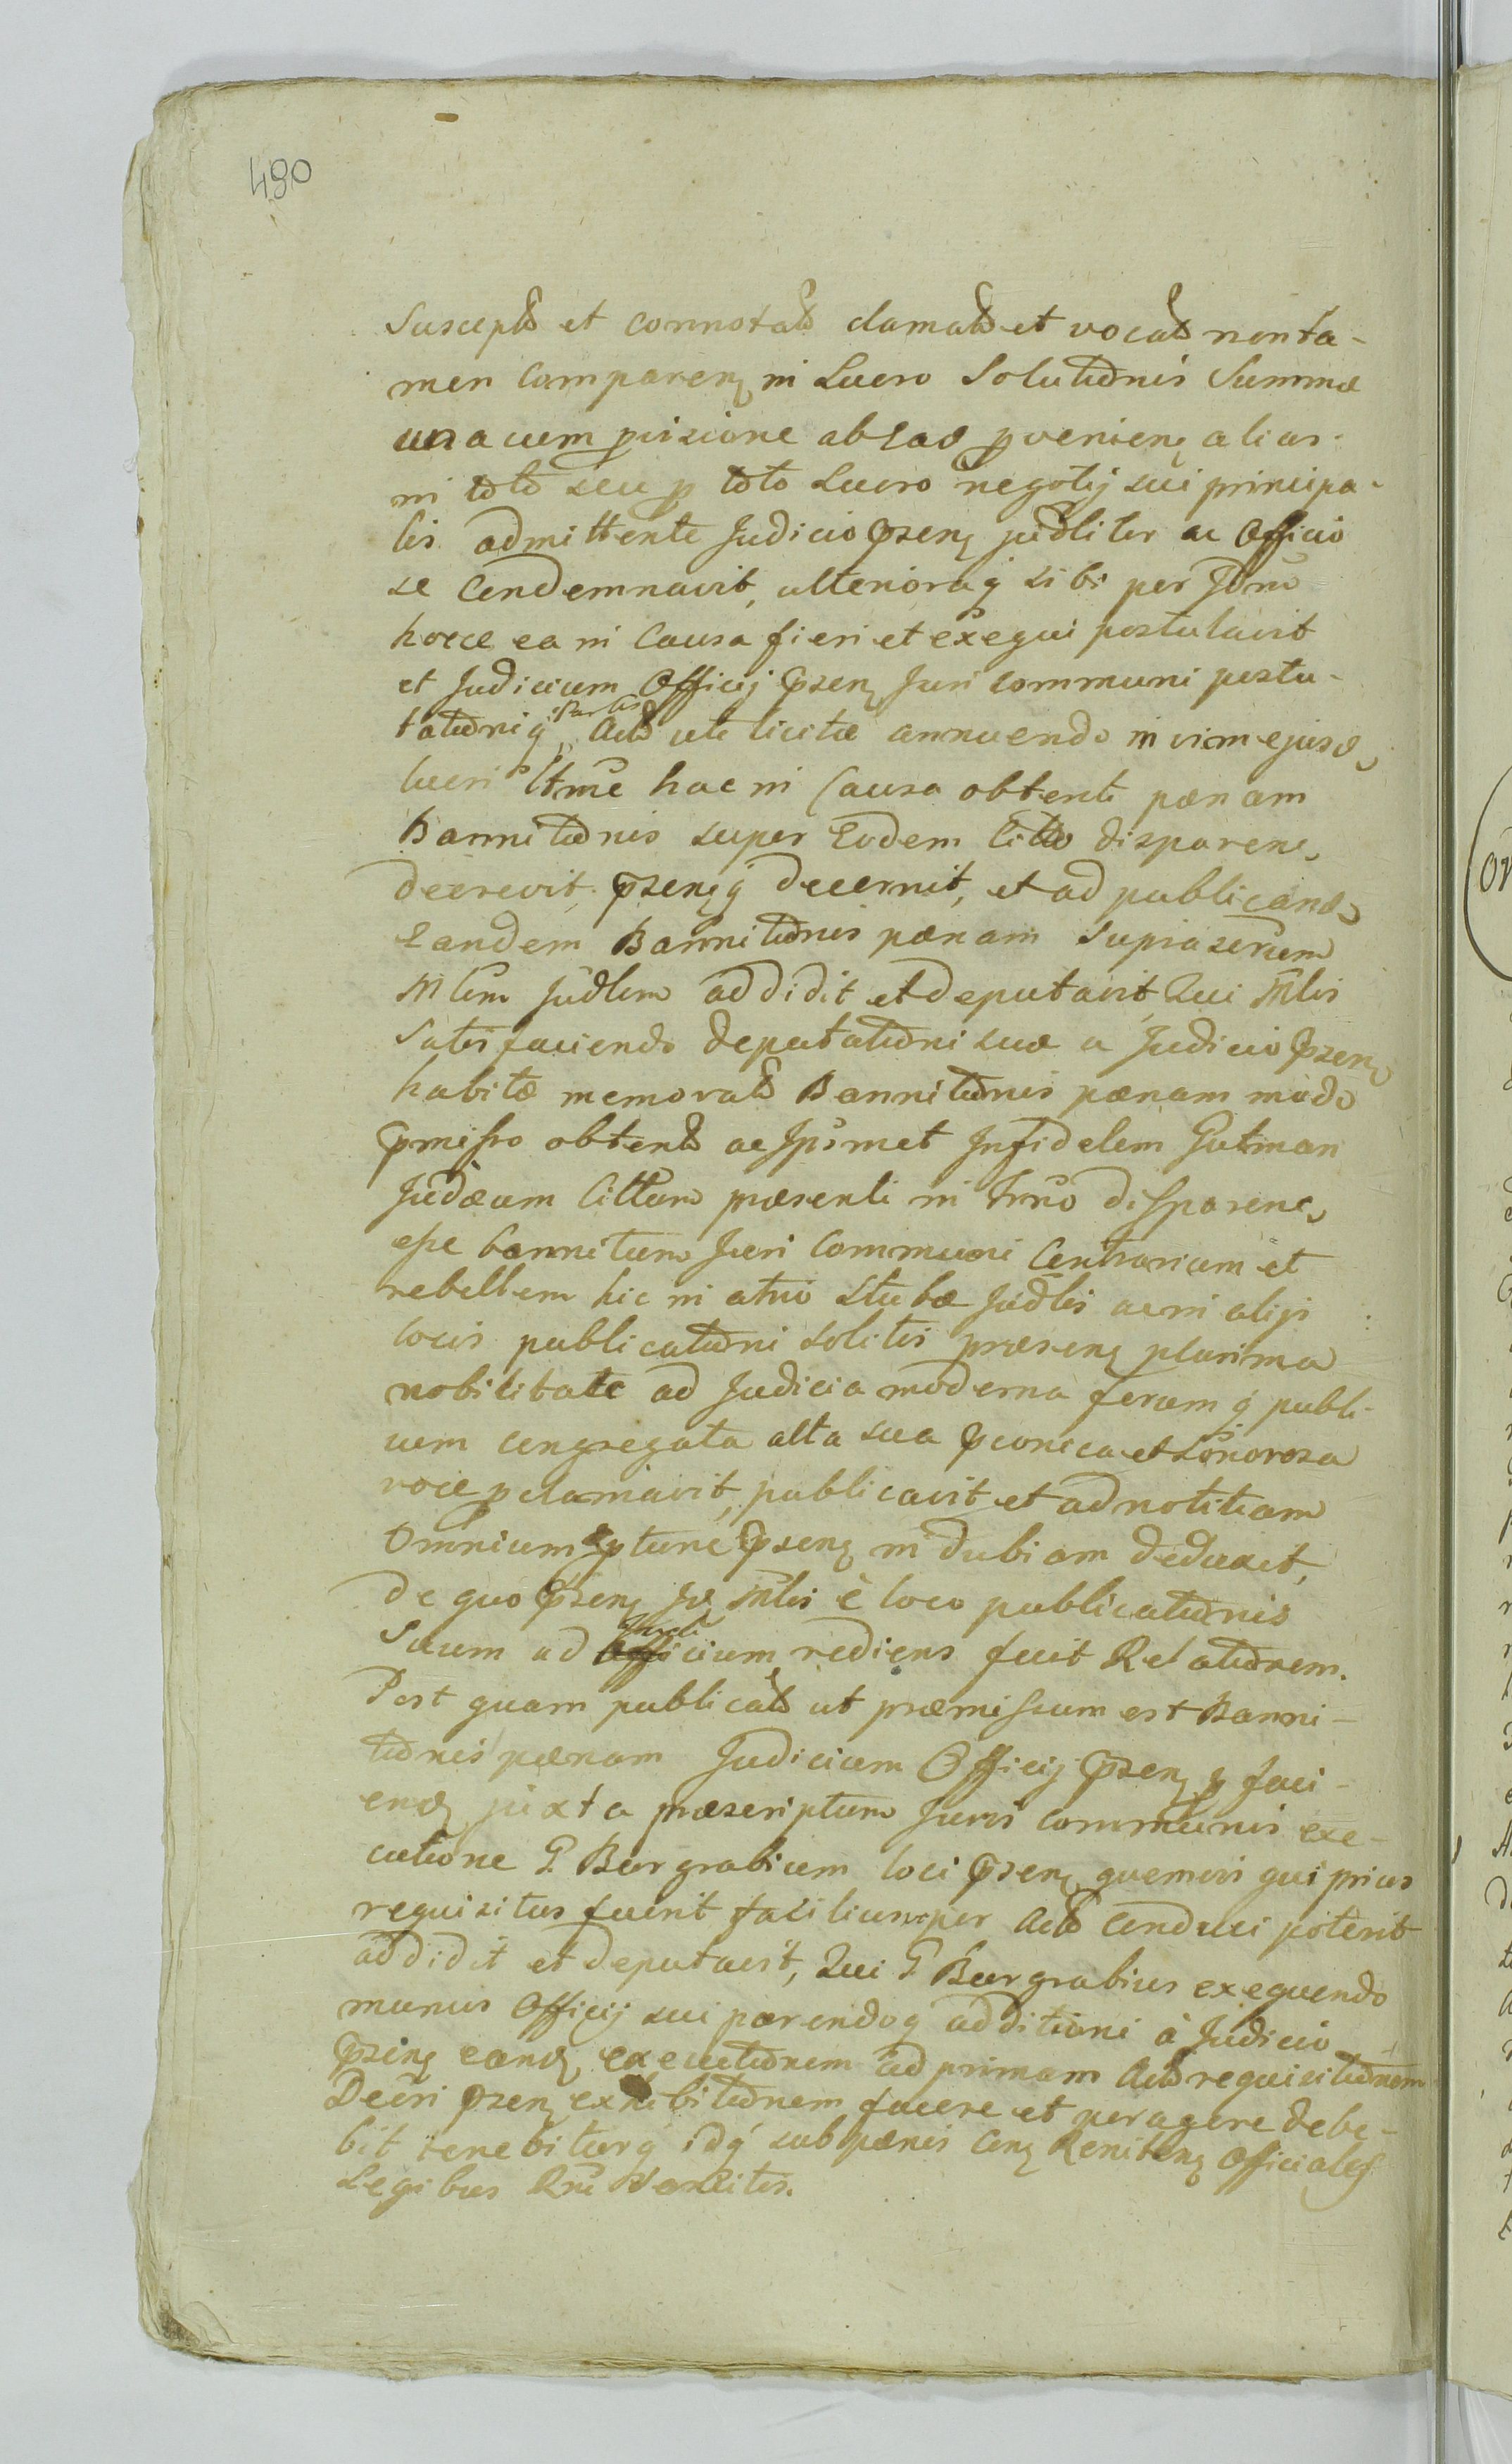 490
Suscepts et connotats clamats et vocats non ta-
men comparen in Lucro Solutionis Summæ
una cum proisione ab eas provenien alias
in toto seu pro toto Lucro negotij sui principa-
lis admittente Judicio prsen judliter ac Officio
se Condemnavit, ulterioraq sibi per
hocce ea in Causa fieri et exequi postulavit
et Judicium Officij prsen Juri communi postu-
lationiq Partis Acts uti licitæ annuendo in vim ejusd
lucri hac in Causa obtenti pœnam
Bannitionis super Eodem Citto disparen
decrevit, prsenq decernit, et ad publicand
Eandem Bannitionis pœnam Suprascrum
Mlem Judlem addidit et deputavit, Qui Mlis
Satisfaciendo deputationi suæ a Judicio prsen
habitæ memorats Bannitionis pœnam modo
prmisso obtents ac Ipsmet Infidelem Gutman
Judæum Cittum præsenti in Trno disparen
esse bannitum Juri Communi Contrarium et
rebellem hic in atrio Stubæ Judlis ac in alijs
locis publicationi solitis præsen plurima
nobilitate ad Judicia moderna forumq publi-
cum congregata alta sua præconica et sonorosa
voce proclamavit, publicavit et ad notitiam
Omnium protunc prsen indubiam deduxit,
De quo prsen Mlis è loco publicationis
Suum ad Officium rediens fecit Relationem.
Post quam publicats ut præmissum est Banni-
tionis pœnam Judicium Officij prsen pro faci-
end juxta præscriptum Juris communis exe-
cutione G. Burgrabium loci prsen quemvis qui prius
requisitus fuerit faciliusve per Acts conduci poterit
addidit et deputavit, Qui G Burgrabius exequendo
munus Officij sui parendoq additioni à Judicio
prsen eand executionem ad primam Acts requisitionem
Decri prsen exhibitionem facere et peragere debe-
bit tenebiturq idq sub pœnis Con Reniten Officiales
Legibus Rni Sancitis.
or